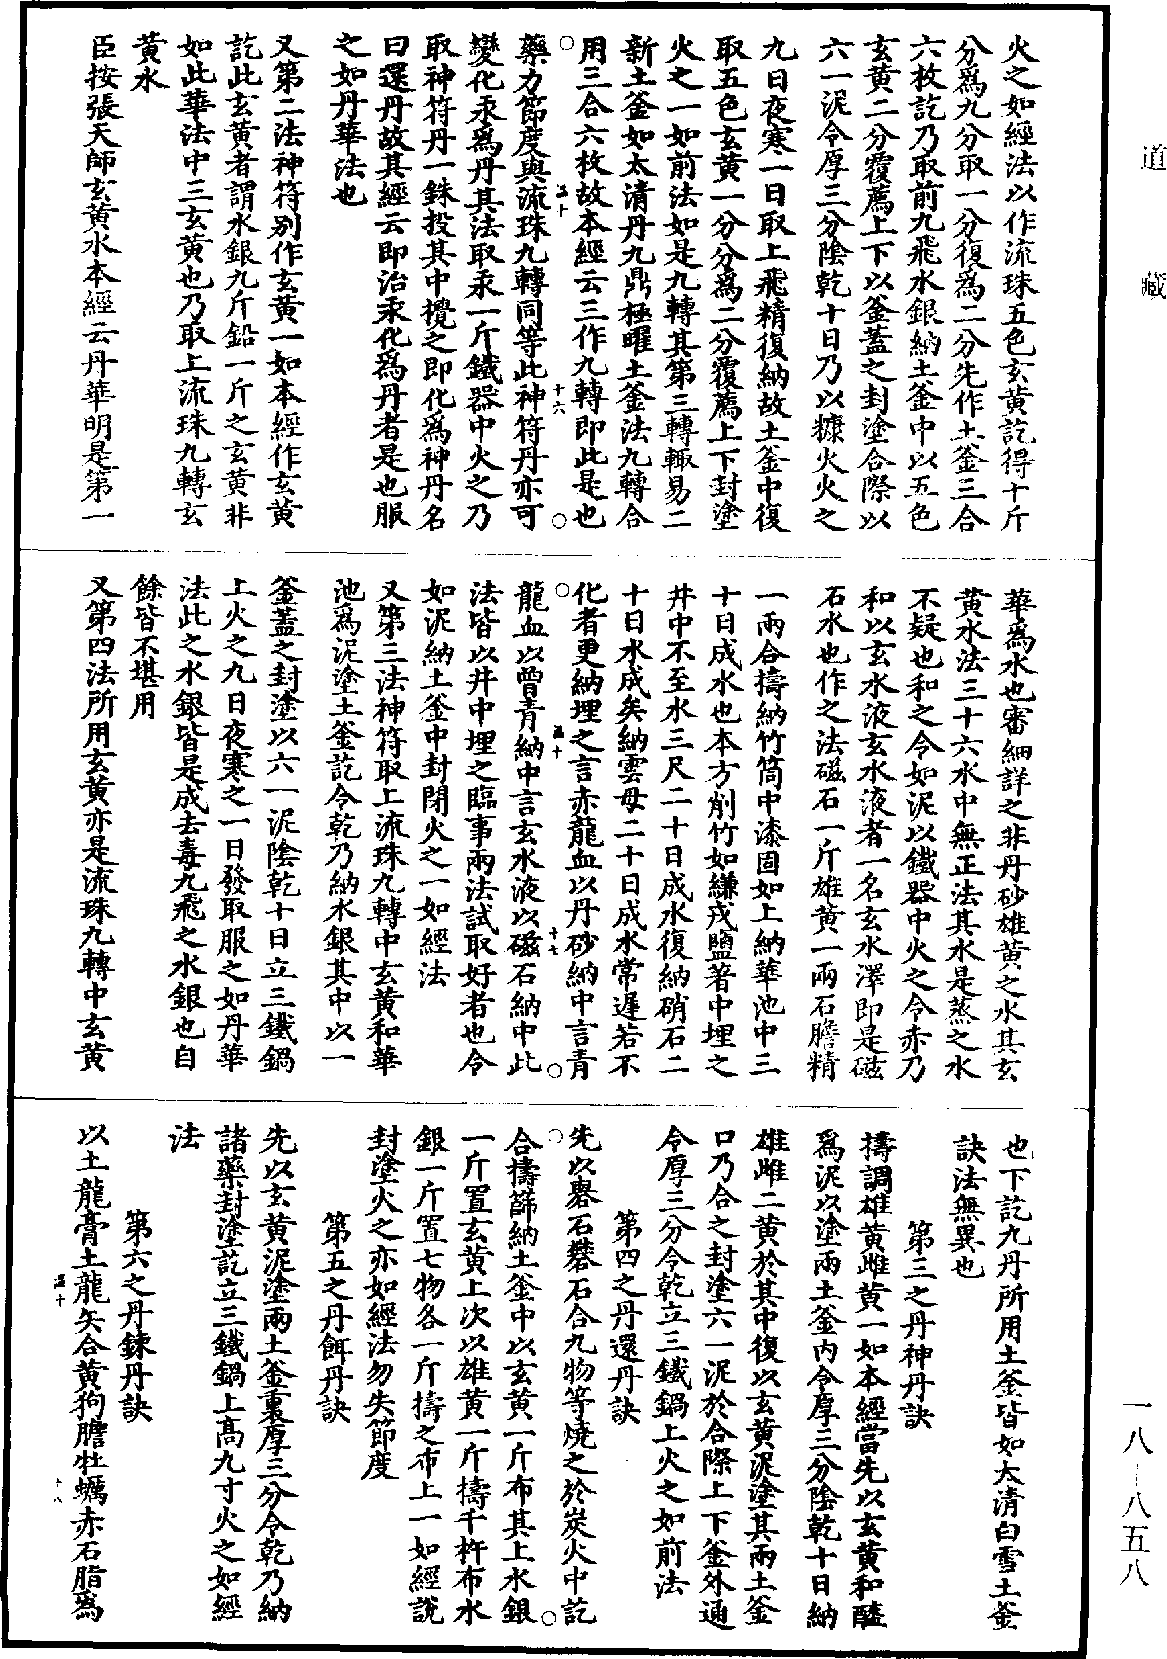 道藏
火之如經法以作流珠五色玄黃訖得十斤
分爲九分取一分復爲二分先作土釜三合
六枚訖乃取前九飛水銀納土釜中以五色
玄黃二分覆薦上下以釜蓋之封塗合際以
六一泥令厚三分陰乾十日乃以糠火火之
九日夜寒一日取上飛精復納故土釜中復
取五色玄黃一分分爲二分覆薦上下封塗
火之一如前法如是九轉其第三轉輙易二
新土釜如太清丹九鼎極曜土釜法九轉合
用三合六枚故本經云三作九轉即此是也
溫十 十六
藥力節度與流珠九轉同等此神符丹亦可
變化汞爲丹其法取汞一斤鐵器中火之乃
取神符丹一銖投其中攪之即化爲神丹名
曰還丹故其經云即治汞化爲丹者是也服
之如丹華法也
又第二法神符別作玄黃一如本經作玄黃
訖此玄黃者謂水銀九斤鉛一斤之玄黃非
如此華法中三玄黃也乃取上流珠九轉玄
黃水
臣按張天師玄黃水本經云丹華明是第一
華爲水也審細詳之非丹砂雄黃之水其玄
黃水法三十六水中無正法其水是蒸之水
不疑也和之令如泥以鐵器中火之令赤乃
和以玄水液玄水液者一名玄水澤即是磁
石水也作之法磁石一斤雄黃一兩石膽精
一兩合擣納竹筒中漆固如上納華池中三
十日成水也本方削竹如縑戎鹽著中埋之
井中不至水三尺二十日成水復納硝石二
十日水成矣納雲母二十日成水常遲若不
化者更納埋之言赤龍血以丹砂納中言青
溫十 十七
龍血以曾青納中言玄水液以磁石納中此
法皆以井中埋之臨事兩法試取好者也令
如泥納土釜中封閉火之一如經法
又第三法神符取上流珠九轉中玄黃和華
池爲泥塗土釜訖令乾乃納水銀其中以一
釜蓋之封塗以六一泥陰乾十日立三鐵鍋
上火之九日夜寒之一日發取服之如丹華
法此之水銀皆是成去毒九飛之水銀也自
餘皆不堪用
又第四法所用玄黃亦是流珠九轉中玄黃
也下訖九丹所用土釜皆如太清白雪土釜
訣法無異也
第三之丹神丹訣
擣調雄黃雌黃一如本經當先以玄黃和醯
爲泥以塗兩土釜內令厚三分陰乾十日納
雄雌二黃於其中復以玄黃泥塗其兩土釜
口乃合之封塗六一泥於合際上下釜外通
令厚三分令乾立三鐵鍋上火之如前法
第四之丹還丹訣
先以礜石礬石合九物等燒之於炭火中訖
合擣篩納土釜中以玄黃一斤布其上水銀
一斤置玄黃上次以雄黃一斤擣千杵布水
銀一斤置七物各一斤擣之布上一如經說
封塗火之亦如經法勿失節度
第五之丹餌丹訣
先以玄黃泥塗兩土釜裏厚三分令乾乃納
諸藥封塗訖立三鐵鍋上高九寸火之如經
法
第六之丹鍊丹訣
以土龍膏土龍矢合黃狗膽牡蠣赤石脂爲
溫十 十八
一八-八五八